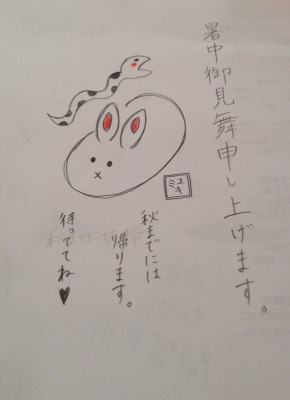 暑中御見舞申し上げます。
ミユキ
秋までには
帰ります。
待っててね♥